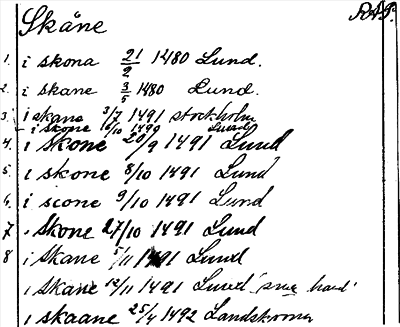 Skåne RAP.
1. i skona 21/2 1480 Lund.
2. i skane 3/5 1480 Lund.
3. i skane 3/7 1491 stockholm
i skone 16/10 1490 Lund
4. i Skone 20/9 1491 Lund
5. i skone 8/10 1491 Lund
6. i scone 9/10 1491 Lund
7. i Skone 27/10 1491 Lund
8 i Skane 5/11 1491 Lund
i Skane 12/11 1491 Lund
i skaane 25/4 1492 Landskrona